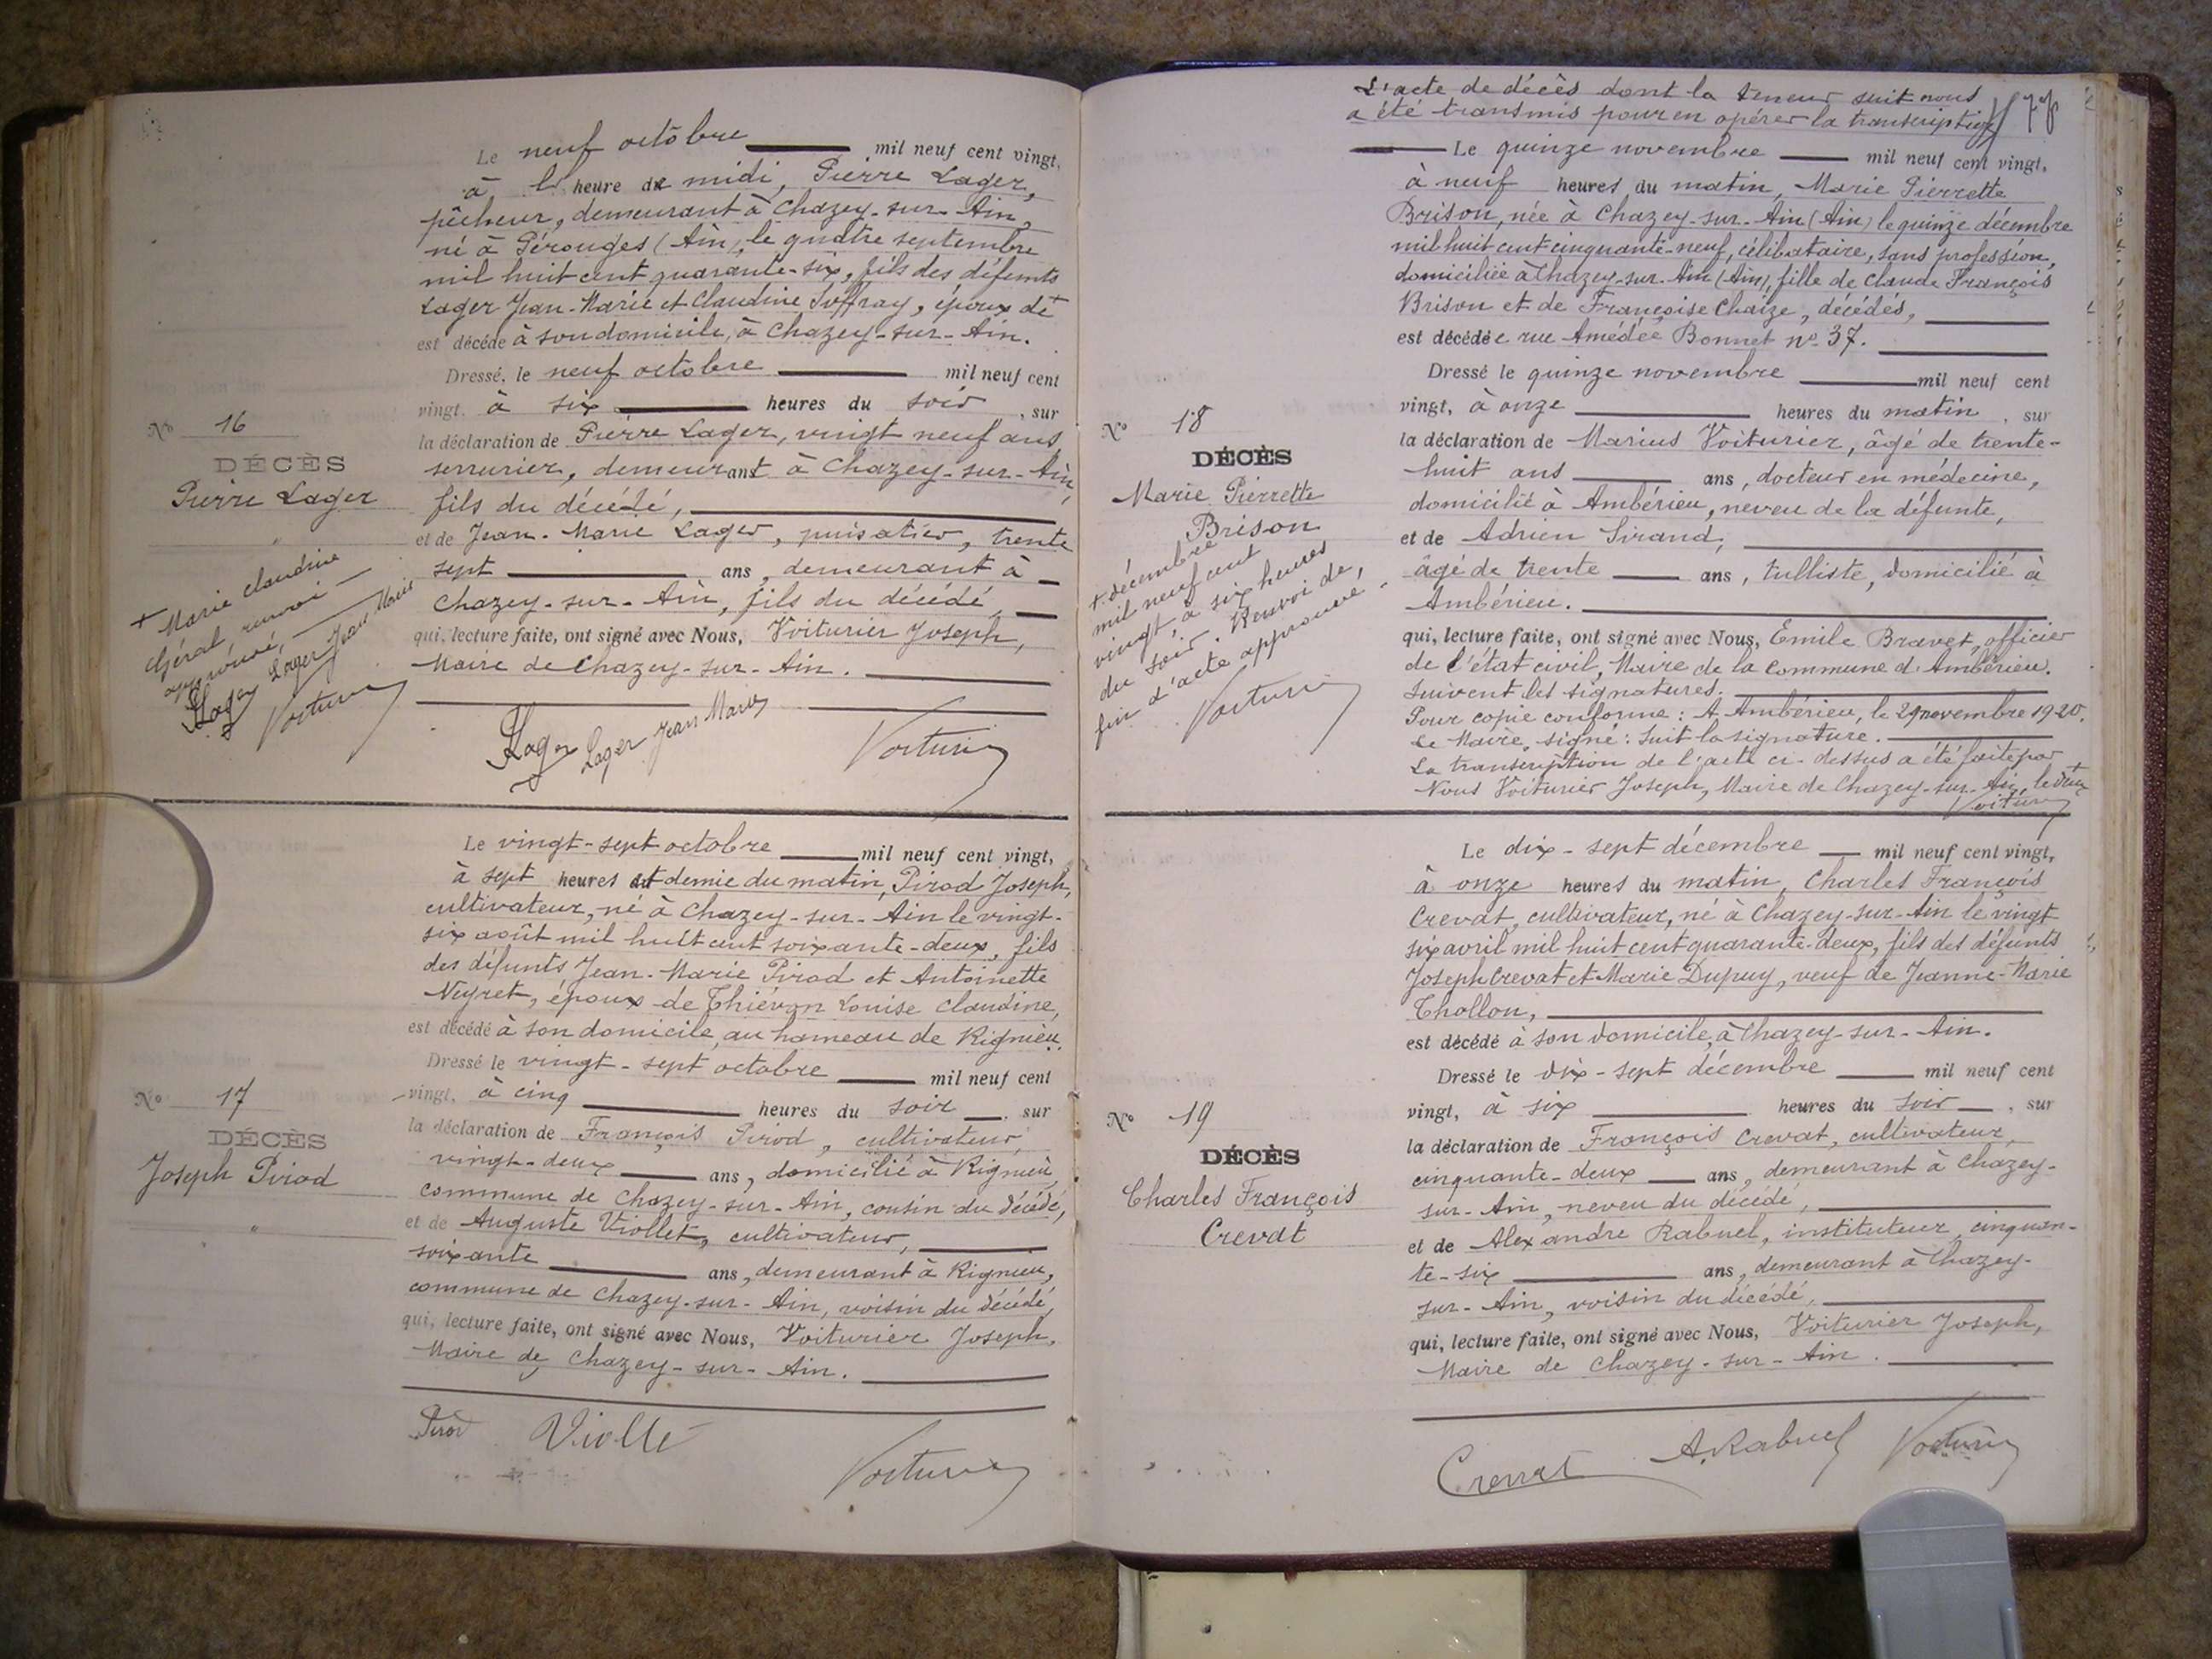 Le neuf octobre mil neuf cent vingt,
à l' heure de midi, Pierre Lager,
pêcheur, demeurant à Chazey-sur-Ain,
né à Pérouges (Ain), le quatre septembre
mil huit cent quarante-six, fils des défunts
Lager Jean-Marie et Claudine Joffray, époux de +
est décédé à son domicile, à Chazey-sur-Ain.
Dressé, le neuf octobre mil neuf cent
vingt, à six heures du soir, sur
la déclaration de Pierre Lager, vingt neuf ans,
serrurier, demeurant à Chazey-sur-Ain,
fils du décédé,
et de Jean-Marie Lager, puisatier, trente
sept ans, demeurant à
Chazey-sur-Ain, fils du décédé
qui, lecture faite, ont signé avec Nous, Voiturier Joseph,
Maire de Chazey-sur-Ain.
Lager Lager Jean Marie Voiturier
No 16
DÉCÈS
Pierre Lager
"
+ Marie Claudine
Géral renvoi
approuvé,
Lager Lager Jean Marie
Voiturier
Le vingt-sept octobre mil neuf cent vingt,
à sept heures et demie du matin, Pirod Joseph,
cultivateur, né à Chazey-sur-Ain le vingt-
six août mil huit cent soixante-deux, fils
des défunts Jean-Marie Pirod et Antoinette
Neyret, époux de Thiévon Louise Claudine,
est décédé à son domicile, au hameau de Rignieu.
Dressé le vingt-sept octobre mil neuf cent
vingt, à cinq heures du soir, sur
la déclaration de François Pirod, cultivateur,
vingt-deux ans, domicilié à Rignieu,
commune de Chazey-sur-Ain, cousin du décédé,
et de Auguste Viollet, cultivateur,
soixante ans, demeurant à Rignieu,
commune de Chazey-sur-Ain, voisin du décédé,
qui, lecture faite, ont signé avec Nous, Voiturier Joseph,
Maire de Chazey-sur-Ain.
Pirod Viollet Voiturier
No 17
DÉCÈS
Joseph Pirod
"
L'acte de décès dont la teneur suit nous
a été transmis pour en opérer la transcription
78
Le quinze novembre mil neuf cent vingt,
à neuf heures du matin, Marie Pierrette
Brison, née à Chazey-sur-Ain (Ain) le quinze décembre
mil huit cent cinquante-neuf, célibataire, sans profession,
domiciliée à Chazey-sur-Ain (Ain), fille de Claude François
Brison et de Françoise Chaize, décédés,
est décédée rue Amédée Bonnet no 37.
Dressé le quinze novembre mil neuf cent
vingt, à onze heures du matin, sur
la déclaration de Marius Voiturier, âgé de trente-
huit ans ans, docteur en médecine,
domicilié à Ambérieu, neveu de la défunte,
et de Adrien Sirand,
âgé de trente ans, tulliste, domicilié à
Ambérieu.
qui, lecture faite, ont signé avec Nous, Emile Bravet, officier
de l'état civil, Maire de la Commune d'Ambérieu.
Suivent les signatures.
Pour copie conforme : A Ambérieu, le 29 novembre 1920.
Le Maire, signé : Suit la signature.
La transcription de l'acte ci-dessus a été faite par
Nous Voiturier Joseph, Maire de Chazey-sur-Ain, le deux +
Voiturier
No 18
DÉCÈS
Marie Pierrette
Brison
+ décembre
mil neuf cent
vingt, à six heures
du soir. Renvoi de
fin d'acte approuvé.
Voiturier
Le dix-sept décembre mil neuf cent vingt,
à onze heures du matin, Charles François
Crevat, cultivateur, né à Chazey-sur-Ain le vingt
six avril mil huit cent quarante-deux, fils des défunts
Joseph Crevat et Marie Dupuy, veuf de Jeanne-Marie
Chollon,
est décédé à son domicile, à Chazey-sur-Ain.
Dressé le dix-sept décembre mil neuf cent
vingt, à six heures du soir, sur
la déclaration de François Crevat, cultivateur,
cinquante-deux ans, demeurant à Chazey-
sur-Ain, neveu du décédé,
et de Alexandre Rabuel, instituteur, cinquan-
te-six ans, demeurant à Chazey-
sur-Ain, voisin du décédé,
qui, lecture faite, ont signé avec Nous, Voiturier Joseph,
Maire de Chazey-sur-Ain.
Crevat A. Rabuel Voiturier
No 19
DÉCÈS
Charles François
Crevat